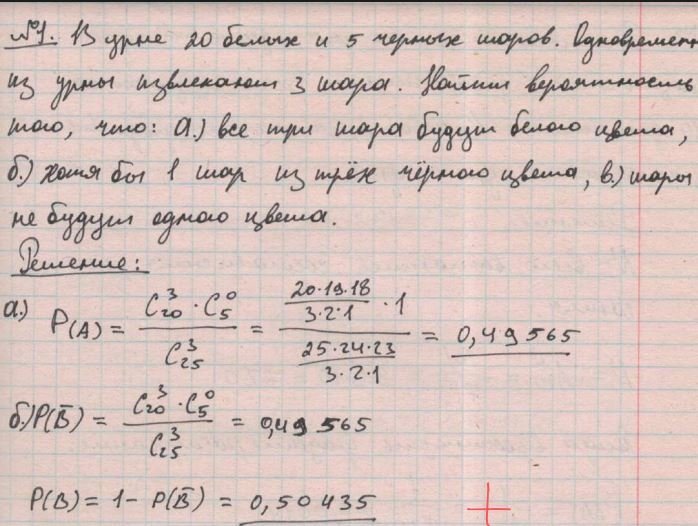 №1. В урне 20 белых и 5 черных шаров. Одновременн
из урны извлекают 3 шара. Найти вероятность
того, что: а.) все три шара будут белого цвета,
б.) хотя бы 1 шар из трёх чёрного цвета, в.) шары
не будут одного цвета.
Решение:
а.) P(A) = (C₂₀³ · C₅⁰) / C₂₅³ = ((20·19·18)/(3·2·1) · 1) / ((25·24·23)/(3·2·1)) = 0,49565
б.) P(B̄) = (C₂₀³ · C₅⁰) / C₂₅³ = 0,49565
P(B) = 1 - P(B̄) = 0,50435 +